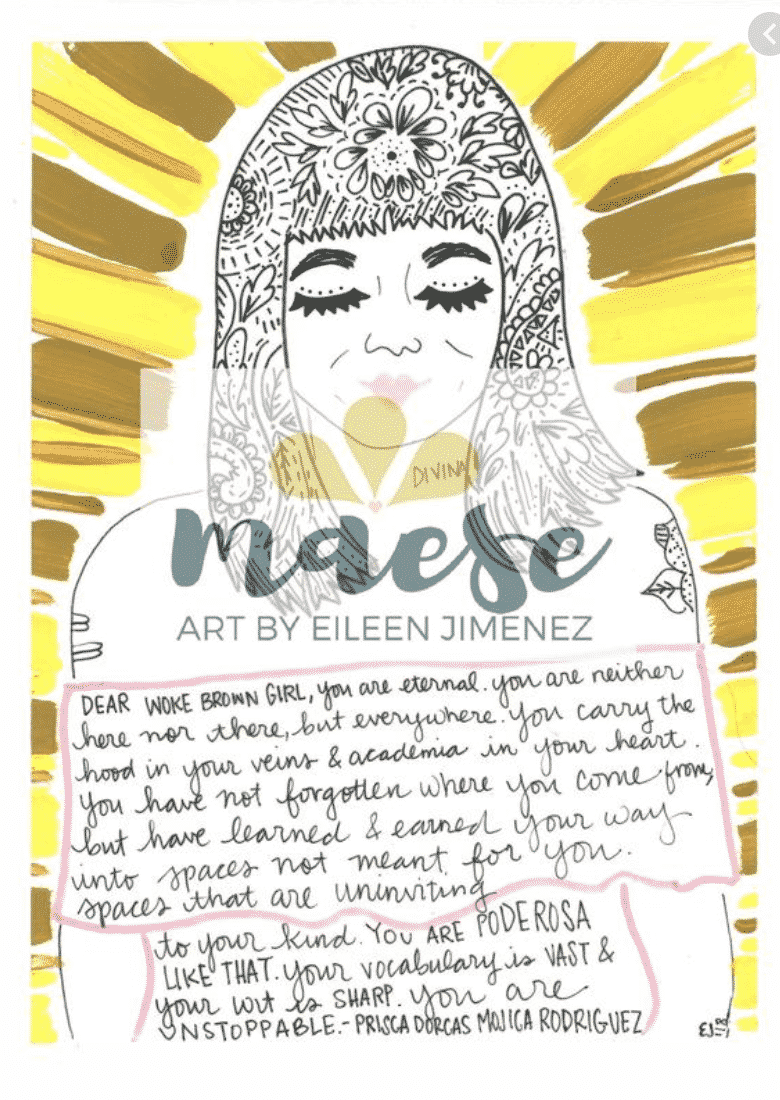 DIVINA
maese
ART BY EILEEN JIMENEZ
DEAR WOKE BROWN GIRL, you are eternal. you are neither
here nor there, but everywhere. you carry the
hood in your veins & academia in your heart.
you have not forgotten where you come from,
but have learned & earned your way
into spaces not meant for you.
spaces that are uninviting
to your kind. YOU ARE PODEROSA
LIKE THAT. your vocabulary is VAST &
your wit is SHARP. you are
UNSTOPPABLE. - PRISCA DORCAS MOJICA RODRIGUEZ
EJ '18